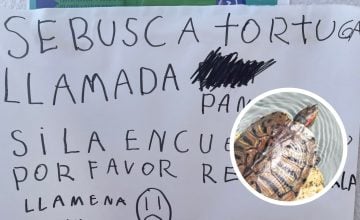 SE BUSCA TORTUGA
LLAMADA
PAN
SI LA ENCUE
POR FAVOR RE ALA
LLAMENA